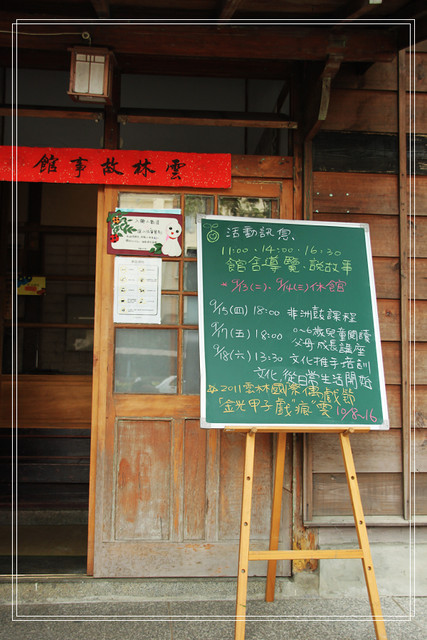 雲林故事館
活動訊息
11:00、14:00、16:30
館舍導覽、說故事
*9/13(二)、9/14(三)休館
9/15(四) 18:00 非洲鼓課程
9/17(五) 18:00 0~6歲兒童閱讀
父母成長講座
9/18(六) 13:30 文化推手培訓
文化從日常生活開始
2011雲林國際偶戲節
「金光甲子戲"瘋"雲 10/8~16